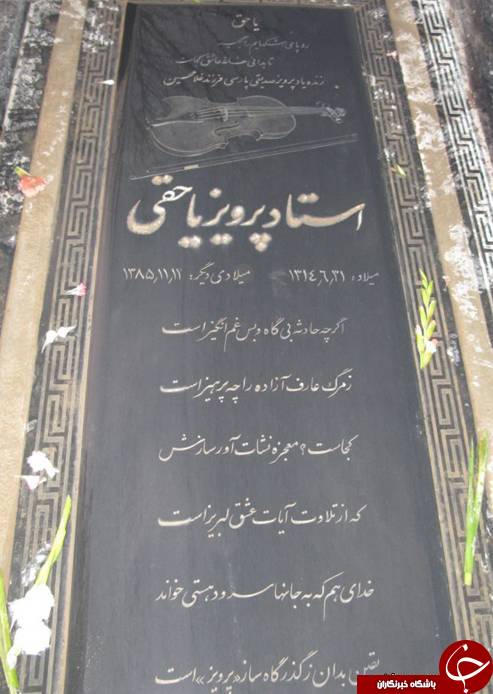 یا حق
رد پای اشکهایم را بگیر
تا بدانی خانه عاشق کجاست
زنده یاد پرویز صدیقی پارسی فرزند غلامحسین
استاد پرویز یاحقی
میلاد: ۱۳۱۴,۶,۳۱ میلادی دیگر: ۱۳۸۵,۱۱,۱۱
اگرچه حادثه بی گاه و بس غم انگیز است
ز مرگ عارف آزاده را چه پرهیز است
کجاست؟ معجزه نشات آور سازش
که از تلاوت آیات عشق لبریز است
خدای هم که به جانها سرود هستی خواند
یقین بدان ز گذرگاه ساز «پرویز» است
باشگاه خبرنگاران